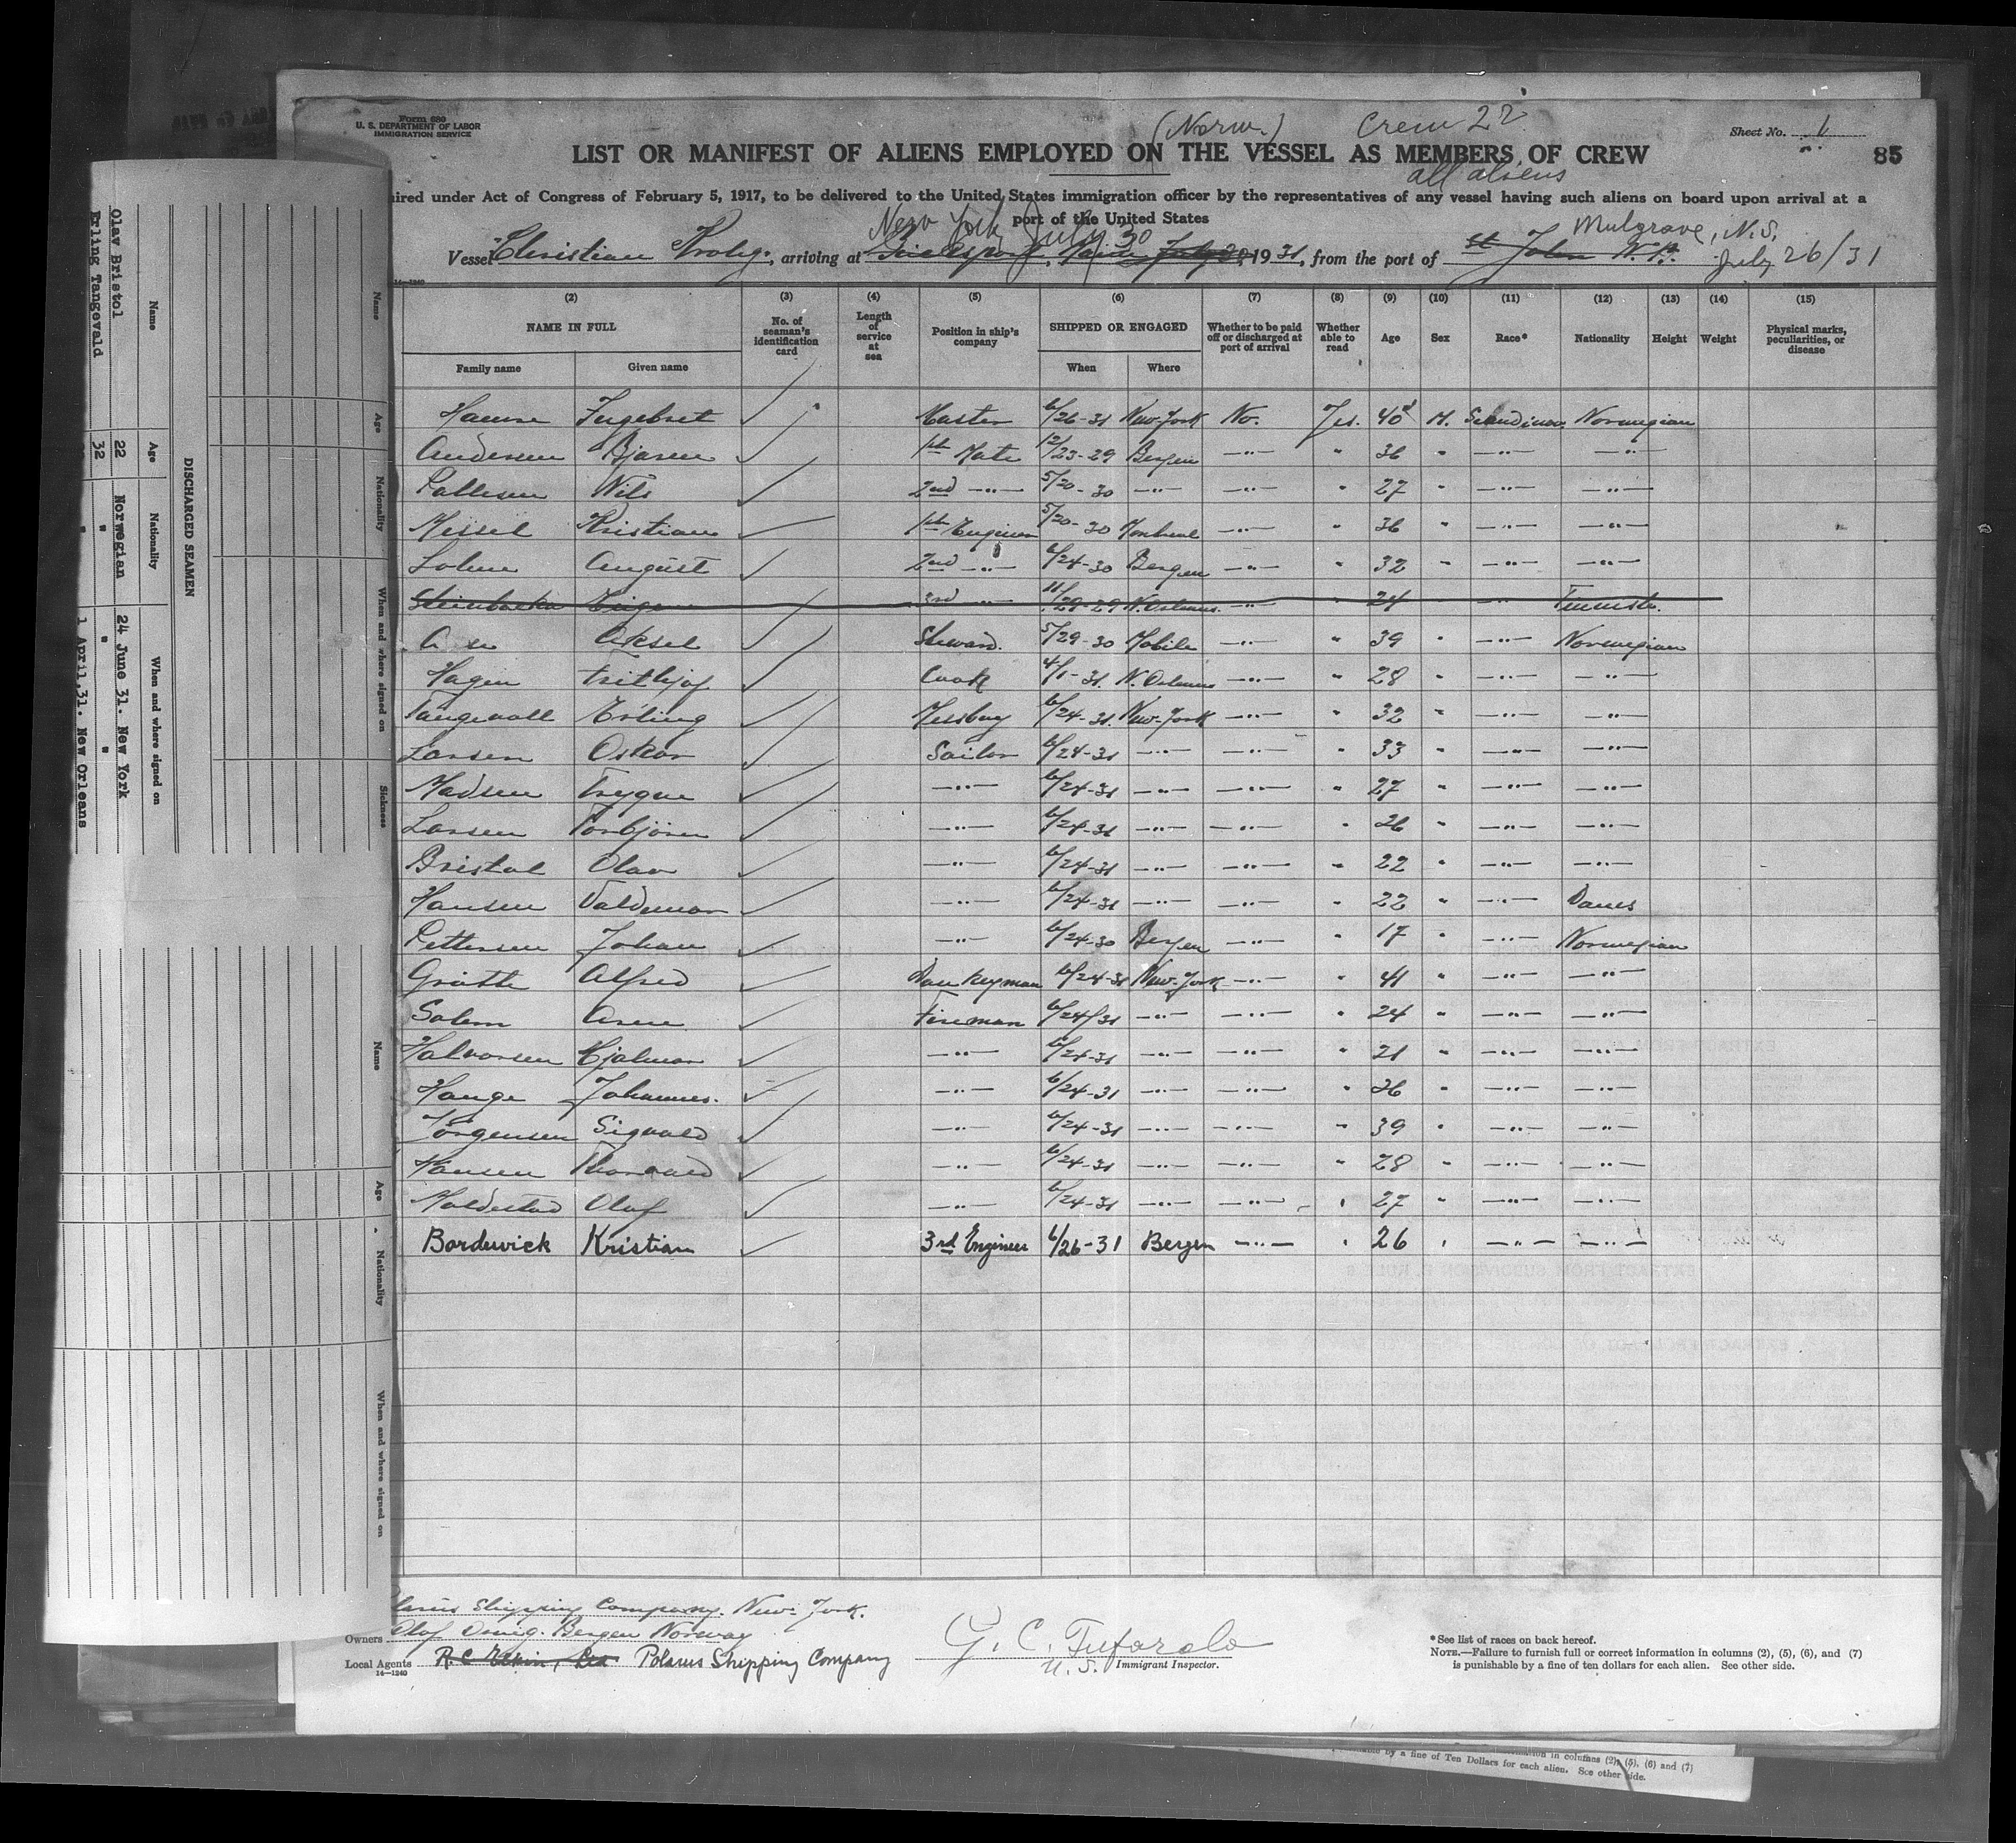 Form 680
U. S. DEPARTMENT OF LABOR
IMMIGRATION SERVICE
(Norw.) Crew 22
Sheet No. 1
LIST OR MANIFEST OF ALIENS EMPLOYED ON THE VESSEL AS MEMBERS OF CREW
85
all aliens
ired under Act of Congress of February 5, 1917, to be delivered to the United States immigration officer by the representatives of any vessel having such aliens on board upon arrival at a
port of the United States
New York July 30
Mulgrave, N.S.
Vessel Christian Krohg, arriving at July 1931, from the port of St John July 26/31
14—1240
(2) (3) (4) (5) (6) (7) (8) (9) (10) (11) (12) (13) (14) (15)
NAME IN FULL No. of seaman's identification card Length of service at sea Position in ship's company SHIPPED OR ENGAGED Whether to be paid off or discharged at port of arrival Whether able to read Age Sex Race* Nationality Height Weight Physical marks, peculiarities, or disease
Family name Given name When Where
Ingebret Master 6/26-31 New-York No. Yes. 40 M. Scandinav. Norwegian
Andersen Bjarne 1st Mate 12/23-29 Bergen —"— " 36 " —"— —"—
Nils 2nd —"— 5/20-30 —"— —"— " 27 " —"— —"—
Messel Kristian 1st Engineer 5/20-30 Montreal —"— " 36 " —"— —"—
August 2nd —"— 6/24-30 Bergen —"— " 32 " —"— —"—
3rd —"— 11/29-29 N.Orleans —"— 24 —"—
Aksel Steward. 5/29-30 Mobile —"— " 39 " —"— Norwegian
Hagen Frithjof Cook 4/1-31. N.Orleans —"— " 28 " —"— —"—
Tangevall Erling Messboy 6/24-31. New-York —"— " 32 " —"— —"—
Larsen Oskar Sailor 6/24-31 —"— —"— " 33 " —"— —"—
Madsen Trygve —"— 6/24-31 —"— —"— " 27 " —"— —"—
Larsen Torbjörn —"— 6/24-31 —"— —"— " 26 " —"— —"—
Bristol Olav —"— 6/24-31 —"— —"— " 22 " —"— —"—
Hansen Valdemar —"— 6/24-31 —"— —"— " 22 " —"— Danes
Pettersen Johan —"— 6/24-30 Bergen —"— " 17 " —"— Norwegian
Alfred Donkeyman 6/24-31 New-York —"— " 41 " —"— —"—
Salem Arne Fireman 6/24/31 —"— —"— " 24 " —"— —"—
Halvorsen Hjalmar —"— 6/24-31 —"— —"— " 21 " —"— —"—
Hauge Johannes. —"— 6/24-31 —"— —"— " 36 " —"— —"—
Jörgensen Sigvald —"— 6/24-31 —"— —"— " 39 " —"— —"—
Hansen Thorvald —"— 6/24-31 —"— —"— " 28 " —"— —"—
Olaf —"— 6/24-31 —"— —"— " 27 " —"— —"—
Bordewick Kristian 3rd Engineer 6/26-31 Bergen —"— " 26 " —"— —"—
Shipping Company. New-York.
Owners Olof Bergen Norway
Local Agents Polarus Shipping Company
14—1240
G. C. Tufarolo
U. S. Immigrant Inspector.
*See list of races on back hereof.
NOTE.—Failure to furnish full or correct information in columns (2), (5), (6), and (7)
is punishable by a fine of ten dollars for each alien. See other side.
by a fine of Ten Dollars for each alien. See other side.
in columns (2), (5), (6) and (7)
DISCHARGED SEAMEN
Name Age Nationality When and where signed on
Olav Bristol 22 Norwegian 24 June 31. New York
Erling Tangevald 32 " " "
" 1 April,31. New Orleans
Name Age Nationality When and where signed on Sickness
Name Age Nationality When and where signed on